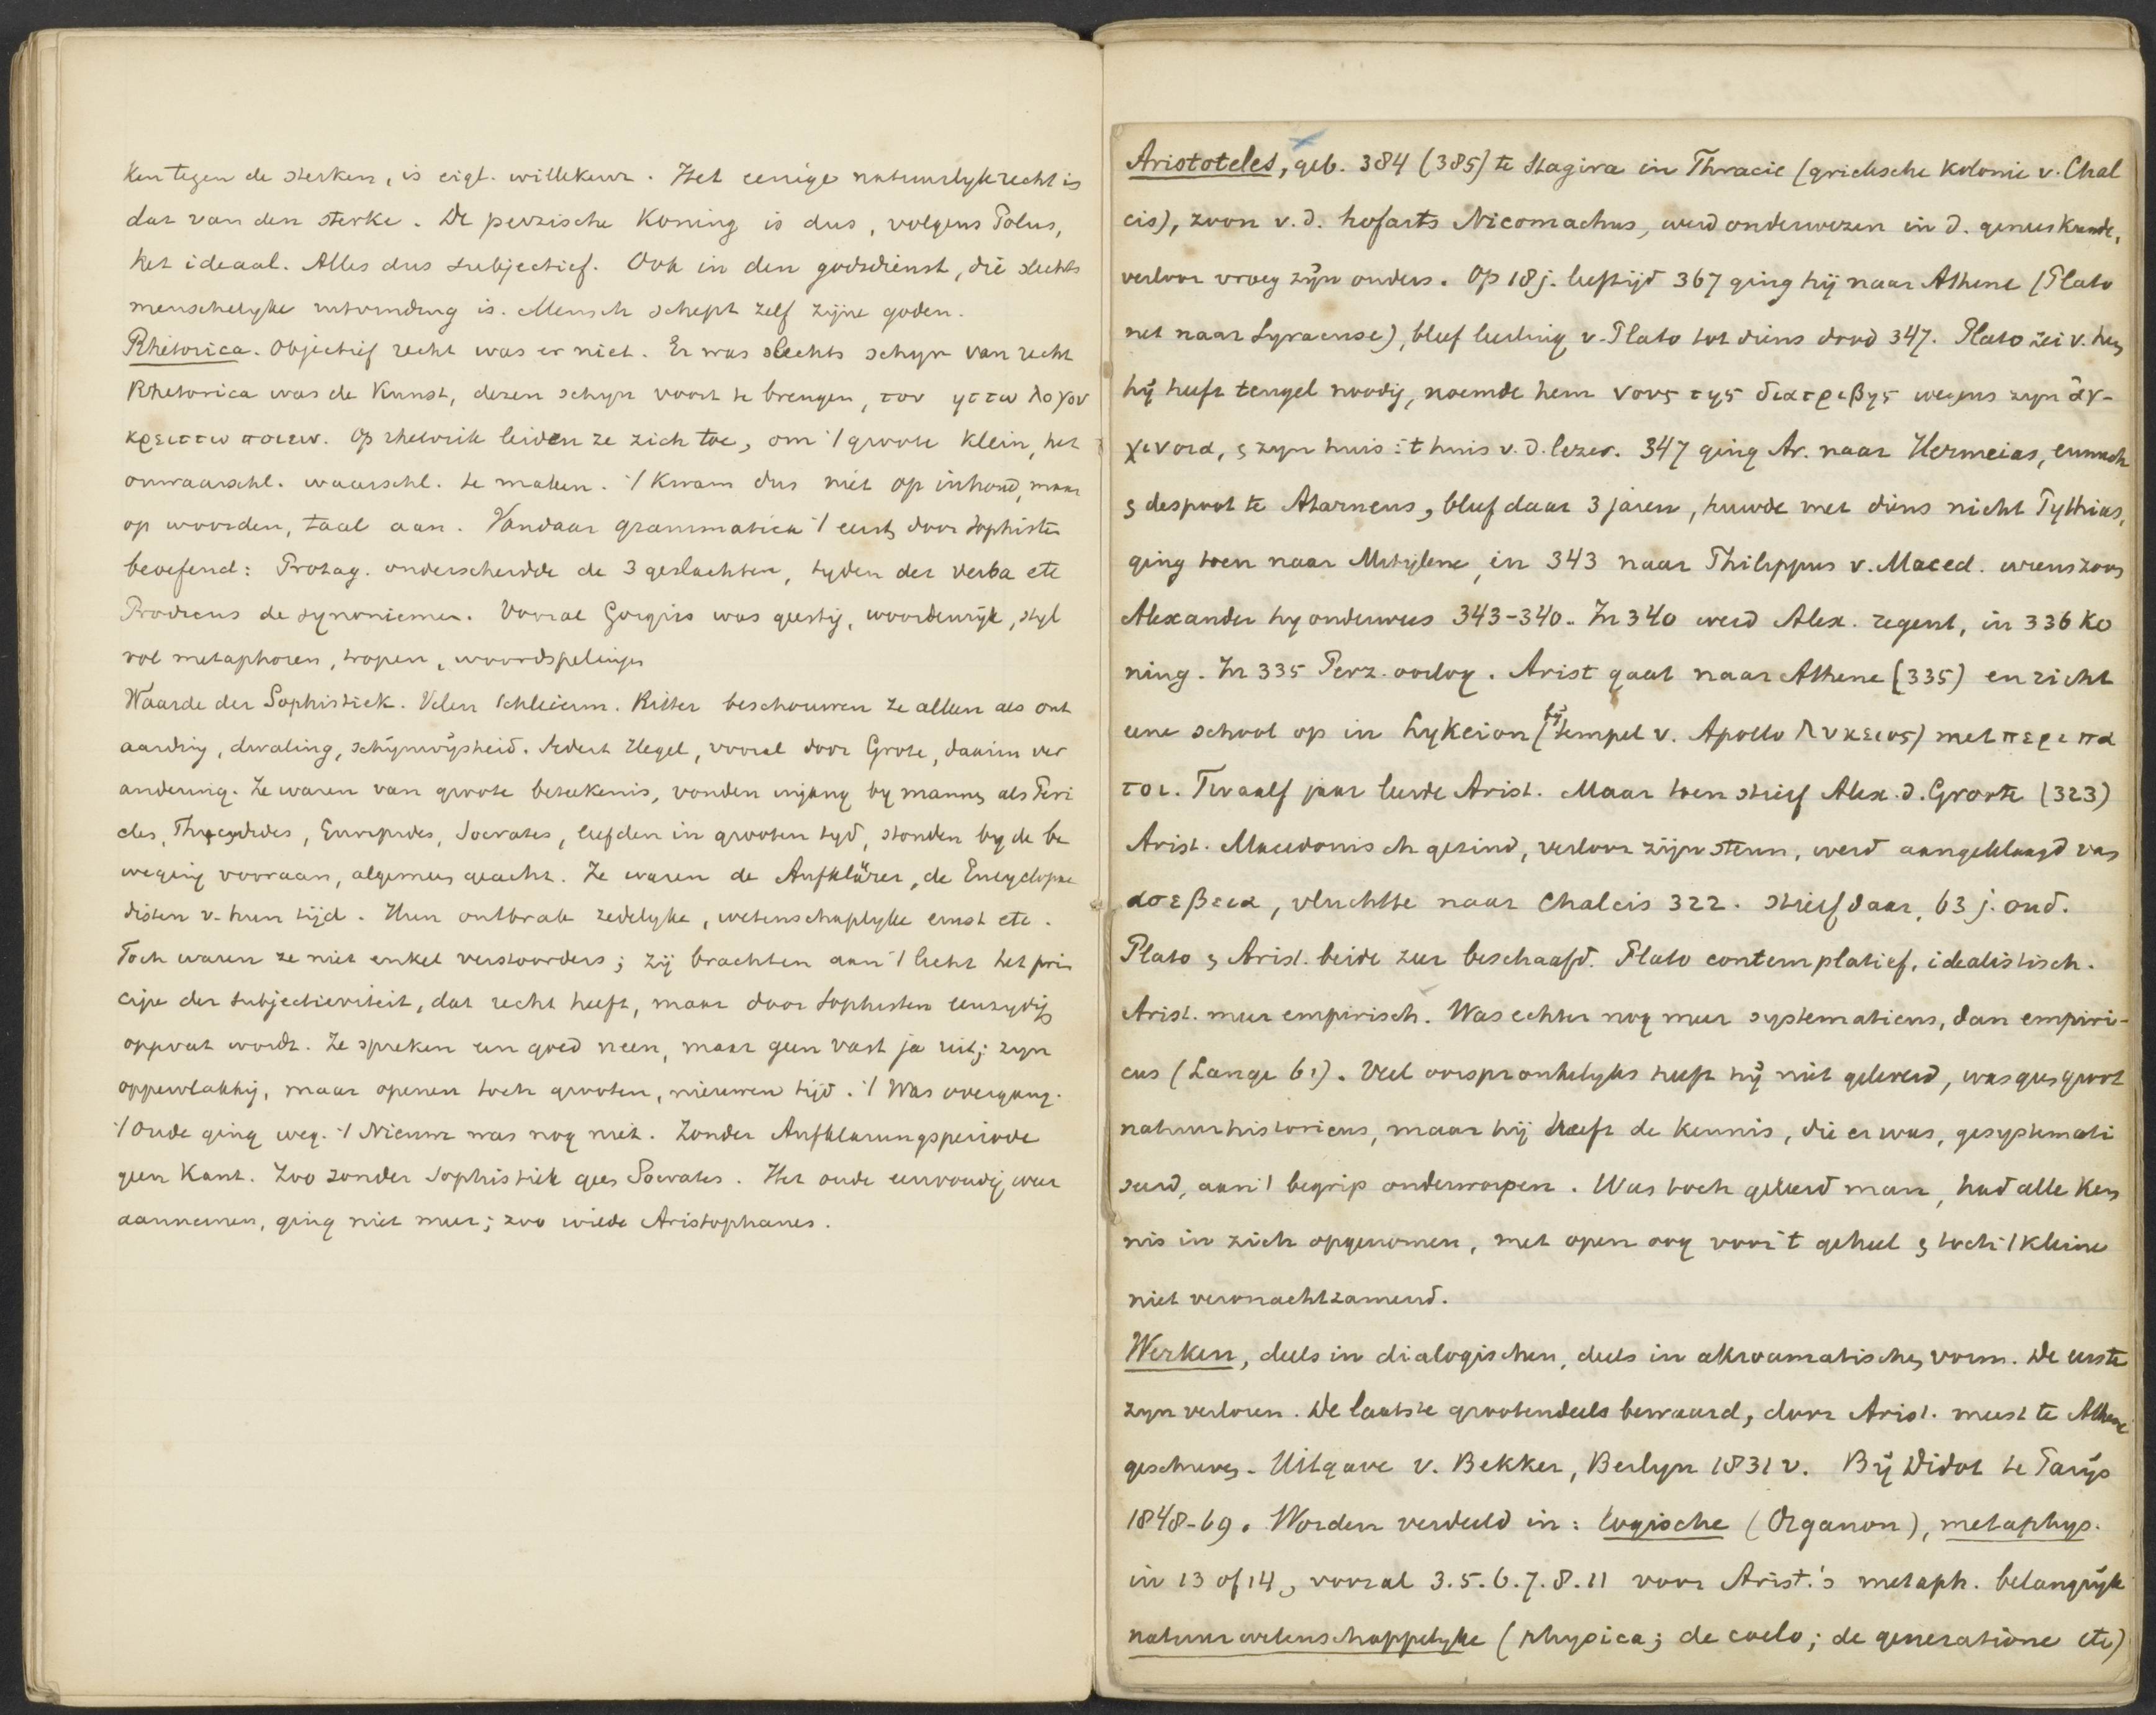 ken tegen de sterken, is eigl. willekeur. Het eenige natuurlyk recht is
dat van den sterke. De perzische Koning is dus, volgens Polus,
het ideaal. Alles dus subjectief. Ook in den godsdienst, die slechts
menschelyke uitvinding is. Mensch schept zelf zijne goden.
Rhetorica. Objectief recht was er niet. Er was slechts schyn van recht
Rhetorica was de Kunst, dezen schyn voort te brengen, τον ηττω λογον
κρειττω ποιειν. Op rhetoriek leiden ze zich toe, om 't groote klein, het
onwaarschl. waarschl. te maken. 't Kwam dus niet op inhoud, maar
op woorden, taal aan. Vandaar grammatica 't eerst door Sophisten
beoefend: Protag. onderscheidde de 3 geslachten, tyden der verba etc
Prodicus de synoniemen. Vooral Gorgias was geestig, woordenrijk, styl
vol metaphoren, tropen, woordspelingen
Waarde der Sophistiek. Velen Schleierm. Ritter beschouwen ze alleen als ont
aarding, dwaling, schijnwijsheid. Sedert Hegel, vooral door Grote, daarin ver
andering. Ze waren van groote beteekenis, vonden ingang by mannen als Peri
cles, Thucydides, Euripides, Socrates, leefden in grooten tyd, stonden by de be
weging vooraan, algemeen geacht. Ze waren de Aufklärer, de Encyclopae
disten v. hun tijd. Hun ontbrak zedelyke, wetenschaplyke ernst etc.
Toch waren ze niet enkel verstoorders; zij brachten aan 't licht het prin
cipe der subjectiviteit, dat recht heeft, maar door Sophisten eenzydig
opgevat wordt. Ze spreken een goed neen, maar geen vast ja uit; zyn
oppervlakkig, maar openen toch grooten, nieuwen tijd. 't Was overgang.
't Oude ging weg. 't Nieuwe was nog niet. Zonder Aufklarungsperiode
geen Kant. Zoo zonder Sophistiek geen Socrates. Het oude eenvoudig weer
aannemen, ging niet meer; zoo wilde Aristophanes.
Aristoteles, geb. 384 (385) te Stagira in Thracie (grieksche Kolonie v. Chal
cis), zoon v. d. hofarts Nicomachus, werd onderwezen in d. geneeskunde,
verloor vroeg zijn ouders. Op 18 j. leeftijd 367 ging hij naar Athene (Plato
net naar Syracuse), bleef leerling v. Plato tot diens dood 347. Plato zei v. hem
hij heeft teugel noodig, noemde hem νους της διατριβης wegens zyn αγ-
χινοια, en zyn huis: 't huis v. d. lezer. 347 ging Ar. naar Hermeias, eunuch
en despoot te Atarneus, bleef daar 3 jaren, huwde met diens nicht Pythias,
ging toen naar Mitylene, in 343 naar Philippus v. Maced. wiens zoon
Alexander hy onderwees 343-340. In 340 werd Alex. regent, in 336 ko
ning. In 335 Perz. oorlog. Arist gaat naar Athene (335) en richt
eene school op in Lykeion (bij tempel v. Apollo Λυκειος) met περιπα
τοι. Twaalf jaar leerde Arist. Maar toen stierf Alex. d. Groote (323)
Arist. Macedonisch gezind, verloor zijn steun, werd aangeklaagd van
ασεβεια, vluchtte naar Chalcis 322. stierf daar, 63 j. oud.
Plato en Arist. beide zeer beschaafd. Plato contemplatief, idealistisch.
Arist. meer empirisch. Was echter nog meer systematicus, dan empiri-
cus (Lange 61). Veel oorspronkelyks heeft hij niet geleverd, was geen groot
natuurhistoricus, maar hij heeft de kennis, die er was, gesystemati
seerd, aan 't begrip onderworpen. Was toch geleerd man, had alle ken
nis in zich opgenomen, met open oog voor 't geheel en toch 't kleine
niet veronachtzamend.
Werken, deels in dialogischen, deels in akroamatischen vorm. De eerste
zyn verloren. De laatste grootendeels bewaard, door Arist. meest te Athene
geschreven. Uitgave v. Bekker, Berlyn 1831 v. Bij Didot te Parijs
1848-69. Worden verdeeld in: logische (Organon), metaphys.
in 13 of 14, vooral 3.5.6.7.8.11 voor Arist.'s metaph. belangrijk
natuurwetenschappelyke (physica; de coelo; de generatione etc)